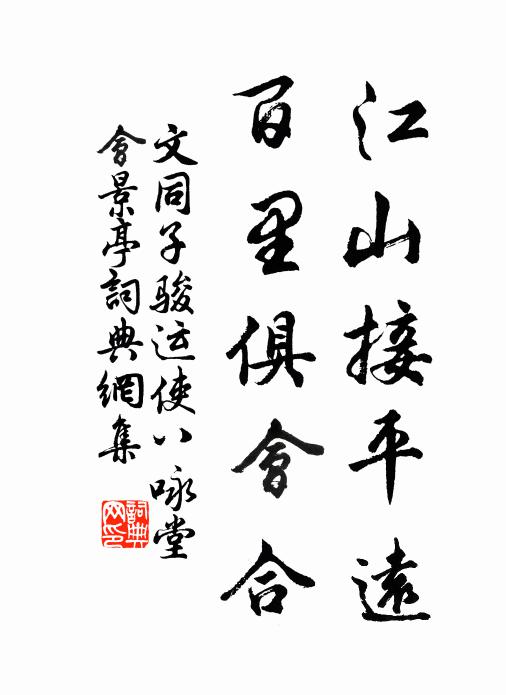 江山接平遠
百里俱會合
文同子駿运使八咏堂
會景亭詞典網集
詞典网印